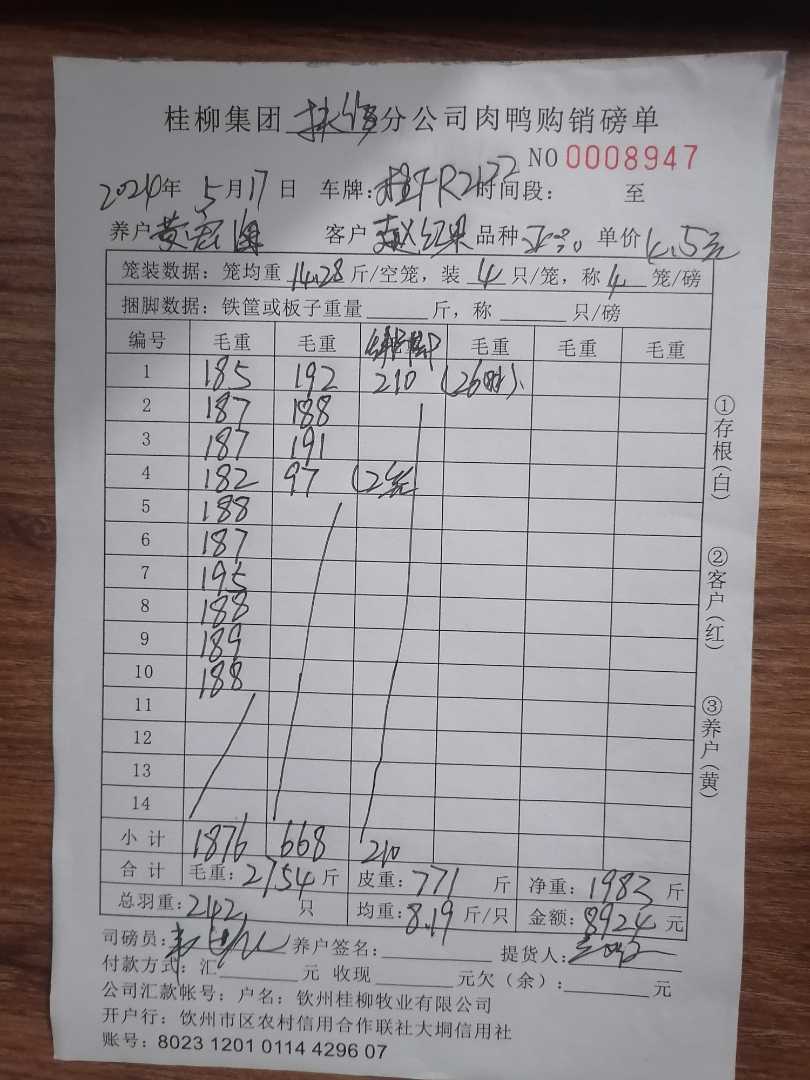 桂柳集团 分公司肉鸭购销磅单
NO 0008947
2024年 5月17日 车牌: 时间段: 至
养户 黄 客户 赵红果 品种 单价 4.5元
笼装数据:笼均重 14.28 斤/空笼,装 4 只/笼,称 4 笼/磅
捆脚数据:铁筐或板子重量 斤,称 只/磅
编号 毛重 毛重 毛重 毛重 毛重
1 185 192 210 (26只)
2 187 188
3 187 191
4 182 97 (2笼
5 188
6 187
7 195
8 188
9 189
10 188
11
12
13
14
小计 1876 668 210
合计 毛重:2754斤 皮重:771斤 净重:1983斤
总羽重:242只 均重:8.19斤/只 金额:8924元
司磅员: 养户签名: 提货人:
付款方式:汇 元 收现 元欠(余): 元
公司汇款帐号:户名:钦州桂柳牧业有限公司
开户行:钦州市区农村信用合作联社大垌信用社
账号:8023 1201 0114 4296 07
①存根(白)
②客户(红)
③养户(黄)